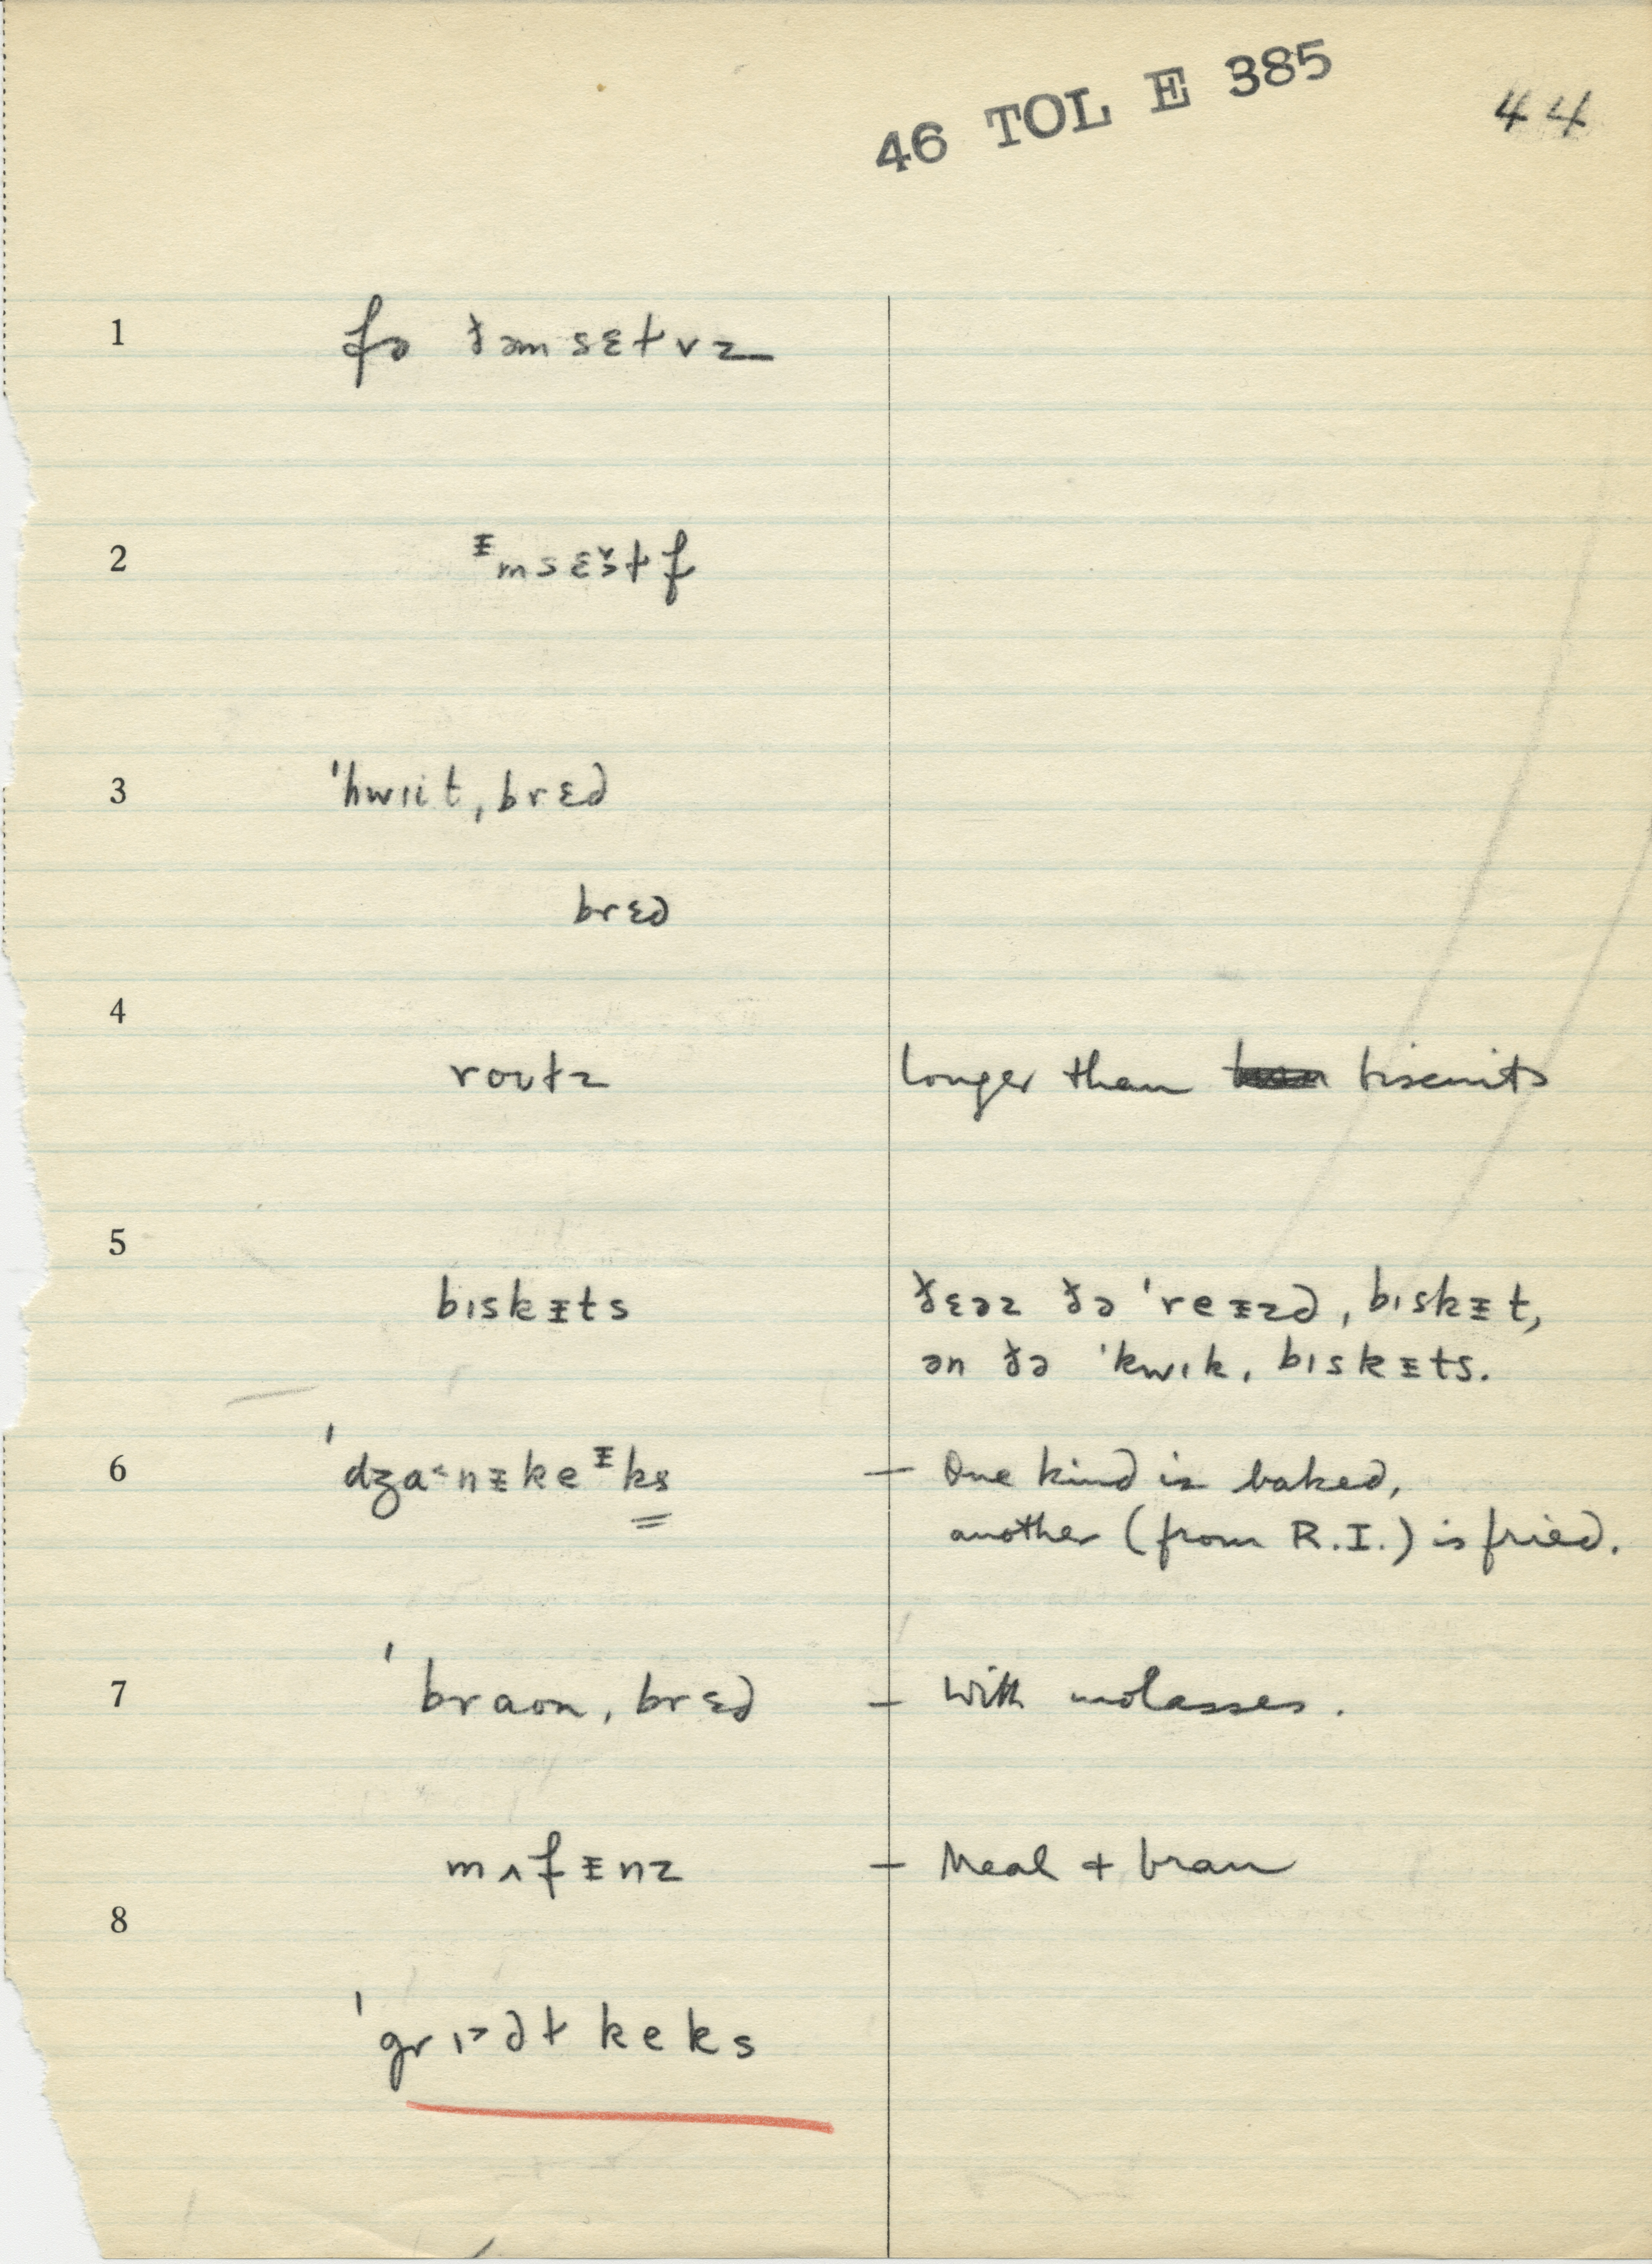 46 TOL E 385
44
1 fə ðəmsɛɫvz
2 ᵻmsɛɜ̆ɫf
3 ˈhwɪit ˌbrɛd
brɛd
4
roʊɫz longer than biscuits
5
bɪskᵻts ðɛəz ðə ˈreᵻzd ˌbɪskᵻt,
ən ðə ˈkwɪk ˌbɪskᵻts.
6 ˈdʒa˂nᵻkeᵻks – One kind is baked,
another (from R.I.) is fried.
7 ˈbraʊn ˌbrɛd – With molasses.
mʌfᵻnz – Meal + bran
8
ˈgrɪ˃dɫ keks